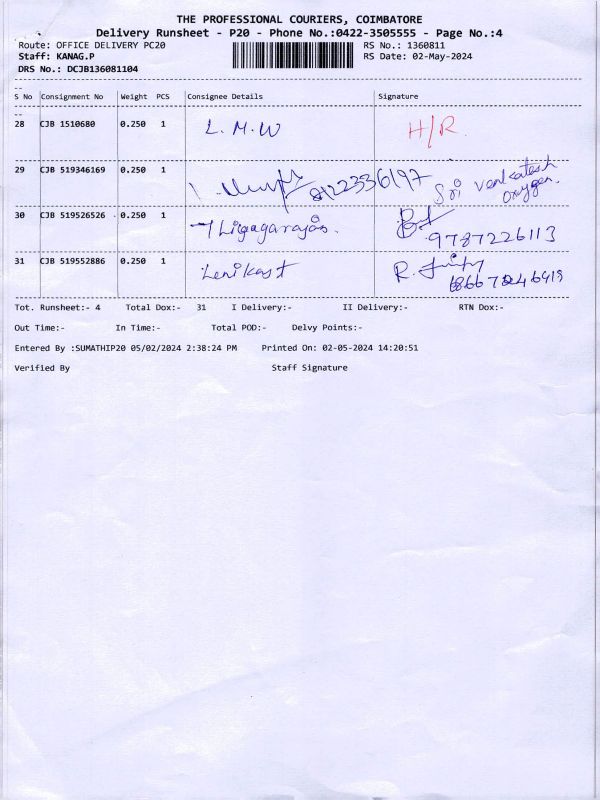 THE PROFESSIONAL COURIERS, COIMBATORE
Delivery Runsheet - P20 - Phone No.:0422-3505555 - Page No.:4
Route: OFFICE DELIVERY PC20 RS No.: 1360811
Staff: KANAG.P RS Date: 02-May-2024
DRS No.: DCJB136081104
S No Consignment No Weight PCS Consignee Details Signature
28 CJB 1510680 0.250 1 L.M.W H/R.
29 CJB 519346169 0.250 1 8122336197 Sri Venkatesh
Oxygen.
30 CJB 519526526 0.250 1
9787226113
31 CJB 519552886 0.250 1 Lenikast R.
Tot. Runsheet:- 4 Total Dox:- 31 I Delivery:- II Delivery:- RTN Dox:-
Out Time:- In Time:- Total POD:- Delvy Points:-
Entered By :SUMATHIP20 05/02/2024 2:38:24 PM Printed On: 02-05-2024 14:20:51
Verified By Staff Signature